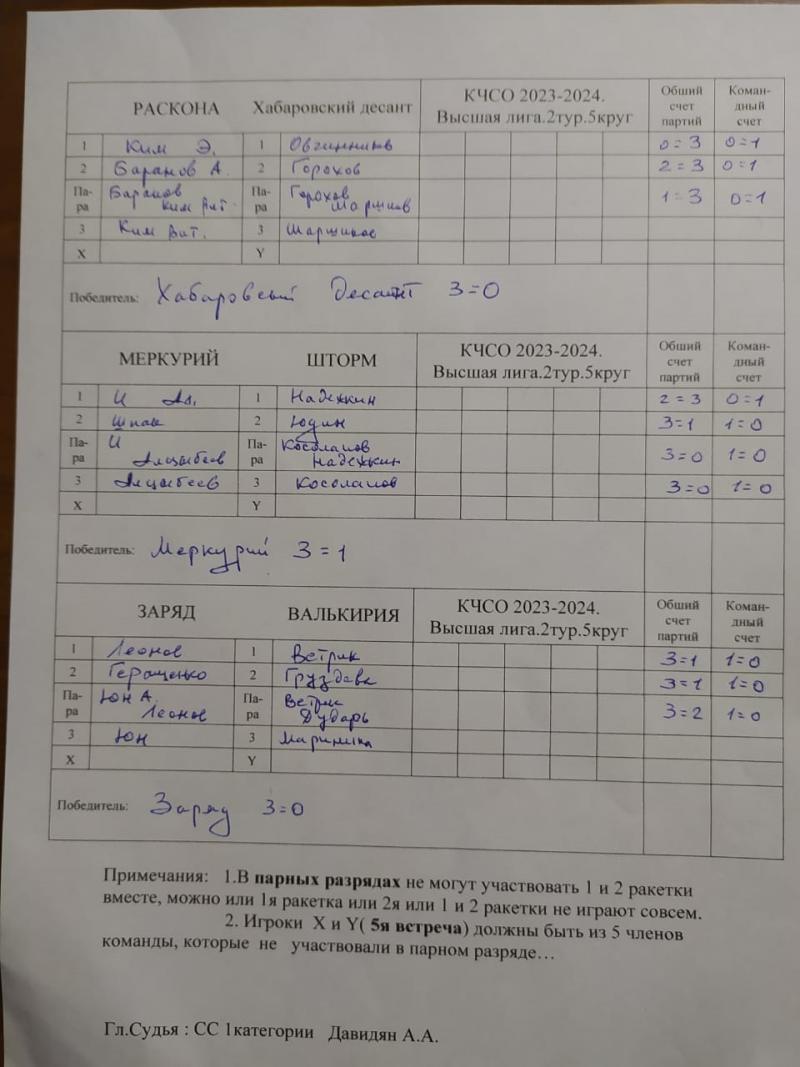 РАСКОНА Хабаровский десант КЧСО 2023-2024. Высшая лига.2тур.5круг Обший счет партий Коман-дный счет
1 Ким Э. 1 Овчинников 0=3 0=1
2 Баранов А. 2 Горохов 2=3 0=1
Па-ра Баранов Ким Вит. Па-ра Горохов Маршиков 1=3 0=1
3 Ким Вит. 3 Маршиков
X Y
Победитель: Хабаровский Десант 3=0
МЕРКУРИЙ ШТОРМ КЧСО 2023-2024. Высшая лига.2тур.5круг Обший счет партий Коман-дный счет
1 И Ал. 1 Надежкин 2=3 0=1
2 Шпак 2 Юдин 3=1 1=0
Па-ра И Алцыбеев Па-ра Косолапов Надежкин 3=0 1=0
3 Алцыбеев 3 Косолапов 3=0 1=0
X Y
Победитель: Меркурий 3=1
ЗАРЯД ВАЛЬКИРИЯ КЧСО 2023-2024. Высшая лига.2тур.5круг Обший счет партий Коман-дный счет
1 Леонов 1 Ветрик 3=1 1=0
2 Геращенко 2 Груздева 3=1 1=0
Па-ра Юн А. Леонов Па-ра Ветрик Дударь 3=2 1=0
3 Юн 3
X Y
Победитель: Заряд 3=0
Примечания: 1.В парных разрядах не могут участвовать 1 и 2 ракетки
вместе, можно или 1я ракетка или 2я или 1 и 2 ракетки не играют совсем.
2. Игроки X и Y( 5я встреча) должны быть из 5 членов
команды, которые не участвовали в парном разряде…
Гл.Судья : СС 1категории Давидян А.А.